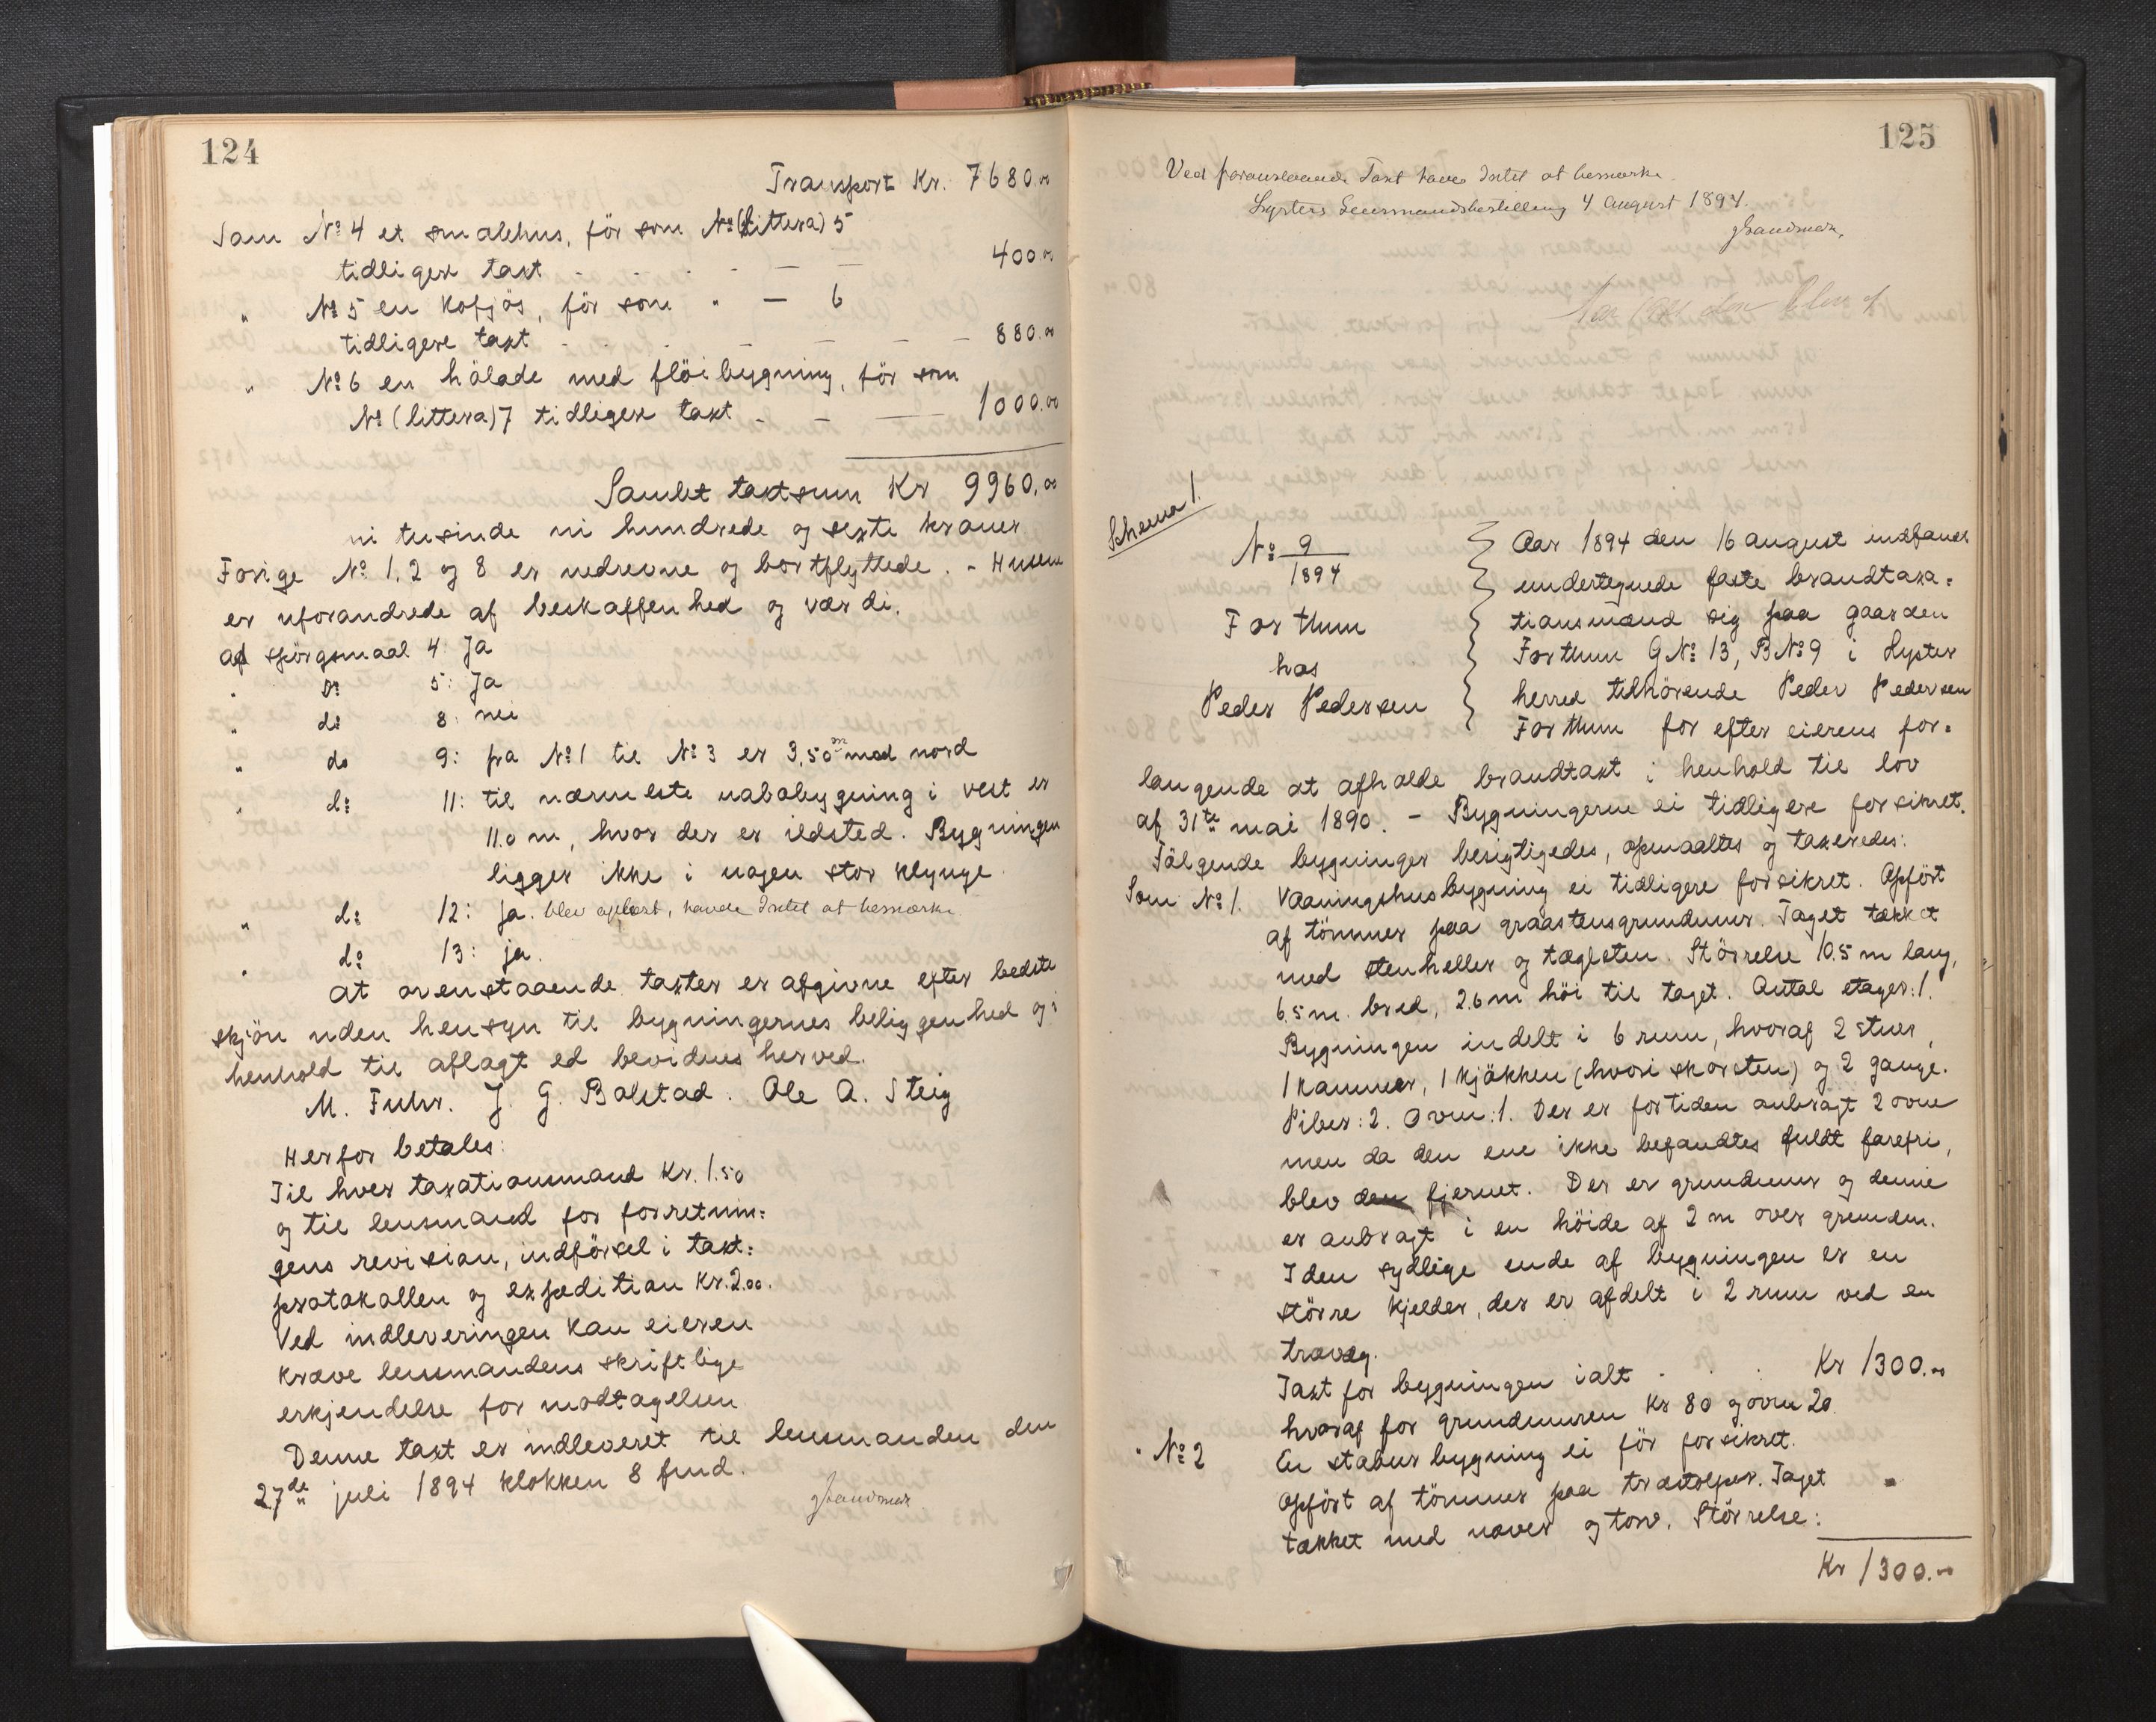 124
Transport Kr. 7680.00
Som № 4 et smalehus, før som № (littera) 5
tidligere taxt - - - - - 400.00
" № 5 en kofjøs, før som " — 6
tidligere taxt - - - - - 880.00
" № 6 en hølade med fløibygning, før som
№ (littera) 7 tidligere taxt - - - 1000.00
Samlet taxtsum Kr 9960.00
ni tusinde ni hundrede og sexti kroner
Forige № 1, 2 og 8 er nedrevne og bortflyttede. - Husene
er uforandrede af beskaffenhed og værdi.
ad spørgsmaal 4: Ja
" Do 5: Ja
" do 8: nei
" do 9: fra № 1 til № 3 er 3,50 m mod nord
" do 11: til nærmeste nabobygning i vest er
11.0 m, hvor der er ildsted. Bygningen
ligger ikke i nogen stor klynge.
" do 12: ja. blev oplæst, havde Intet at bemærke.
" do 13: ja.
At ovenstaaende taxter er afgivne efter bedste
skjøn uden hensyn til bygningernes beliggenhed og i
henhold til aflagt ed bevidnes herved.
M. Fuhr. J. G. Bolstad. Ole A. Steig
Herfor betales:
Til hver taxationsmand Kr. 1.50
og til lensmand for forretnin:
gens revision, indførsel i taxt:
protokollen og expedition Kr. 2.00.
Ved indleveringen kan eieren
kræve lensmandens skriftlige
erkjendelse for modtagelsen
Denne taxt er indleveret til lensmanden den
27de juli 1894 klokken 8 fmd.
125
Ved foranstaaende Taxt haves Intet at bemærke.
Lysters Lensmandsbestilling 4 august 1894.
Schema 1.
№ 9
1894
Forthun
hos
Peder Pedersen
Aar 1894 den 16 august indfandt
undertegnede faste brandtaxa:
tionsmænd sig paa gaarden
Forthun G№ 13, B№ 9 i Lyster
herred tilhørende Peder Pedersen
Forthun for efter eierens for:
langende at afholde brandtaxt i henhold til lov
af 31te mai 1890. - Bygningerne ei tidligere forsikret.
Følgende bygninger besigtigedes, opmaaltes og taxeredes:
Som № 1. Vaaningshusbygning ei tidligere forsikret. Opført
af tømmer paa graastensgrundmur. Taget tækket
med stenheller og taglsten. Størrelse 10.5 m lang,
6.5 m. bred, 2.6 m høi til taget. Antal etager: 1.
Bygningen indelt i 6 rum, hvoraf 2 stuer,
1 kammer, 1 kjøkken (hvori skorsten) og 2 gange.
Piber: 2. Ovn: 1. Der er fortiden anbragt 2 ovne
men da den ene ikke befandtes fuldt farefri,
blev den fjernet. Der er grundmur og denne
er anbragt i en høide af 2 m over grunden.
I den sydlige ende af bygningen er en
større kjelder, der er afdelt i 2 rum ved en
trævæg.
Taxt for bygningen ialt - . . Kr 1300.00
hvoraf for grundmuren Kr 80 og ovn 20.
" № 2 En stabursbygning ei før forsikret.
Opført af tømmer paa træstolper. Taget
tækket med næver og torv. Størrelse:
Kr 1300.00